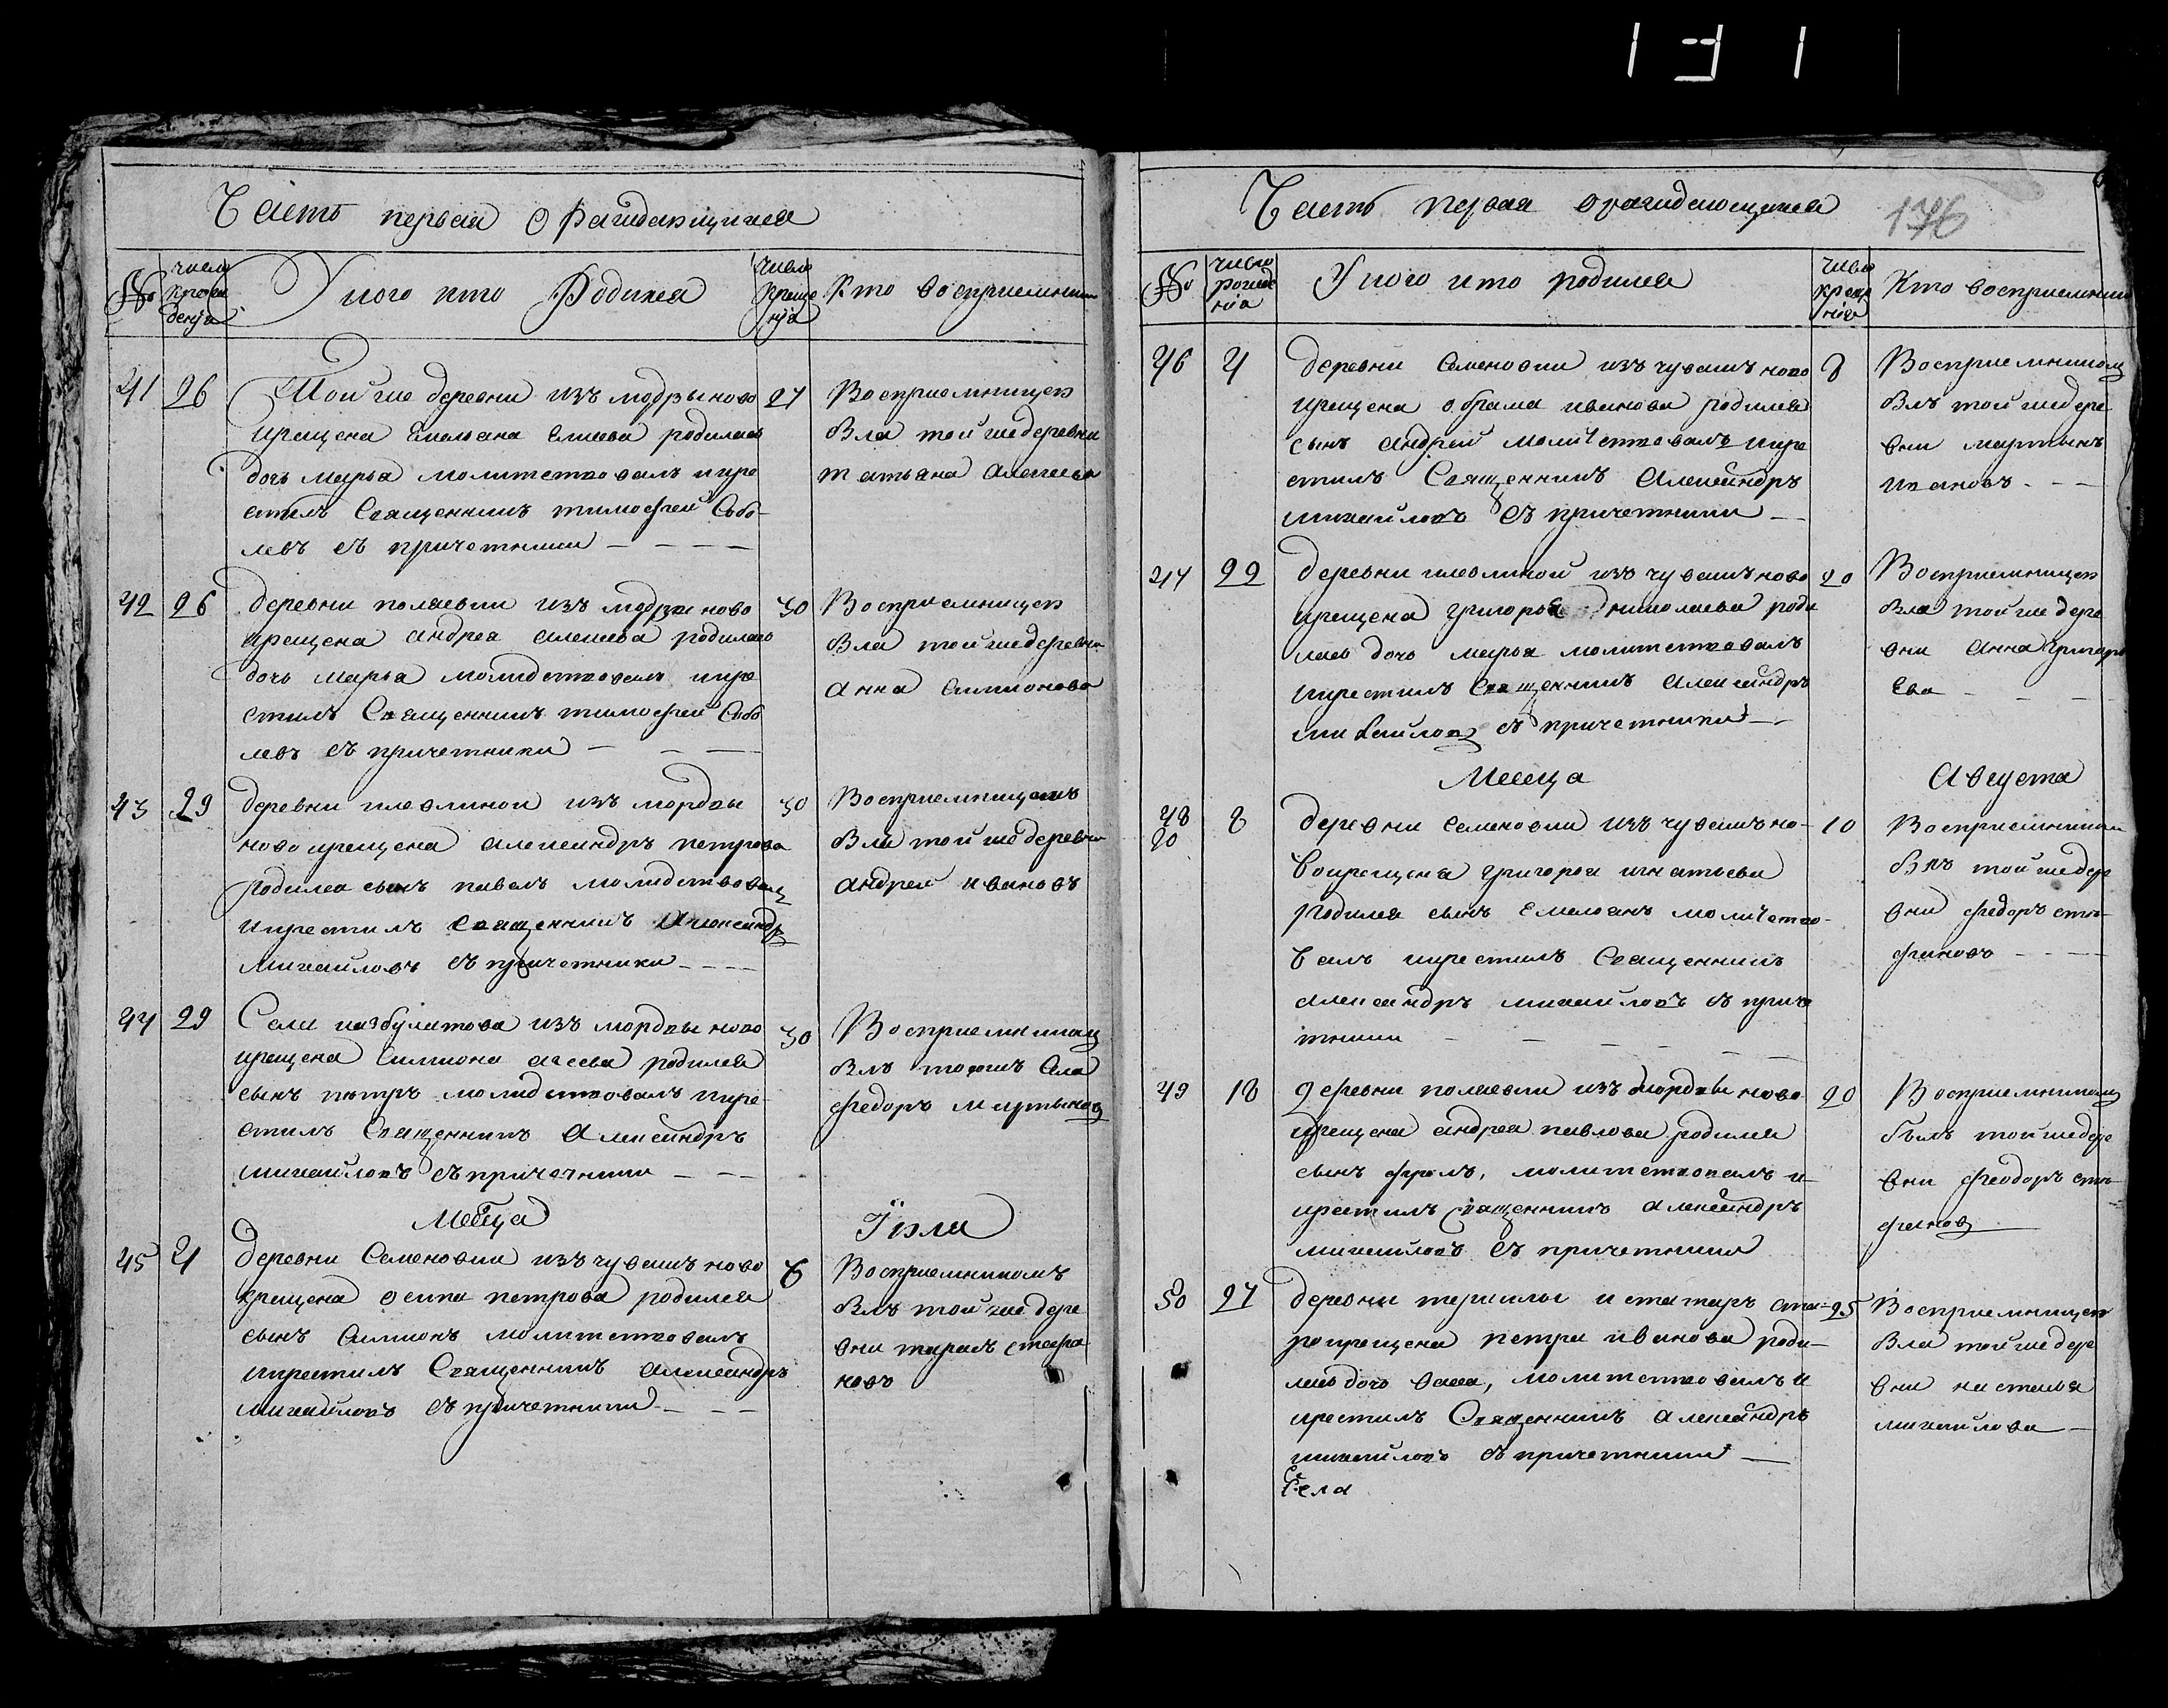 Часть первая о раждающихся
№
число рожденiя
У кого кто Родился
число крещенiя
Кто восприемники
41 26 Той же деревни изъ модвы ново 27 Восприемницею
крещена Емельяна Елисева родилась была той же деревни
дочь марья молитствовалъ и кре татьяна Алексева
стилъ Священникъ тимофей Собо-
левъ съ причетники
42 26 деревни полаевки изъ модвы ново 30 Восприемницею
крещена андрея алексева родилась была той же деревни
дочь марья молидствовалъ и кре Анна Симионова
стилъ Священникъ тимофей Собо
левъ съ причетники
43 29 деревни клевлиной изъ мордвы 30 Восприемникомъ
новокрещена александръ петрова былъ той же деревни
родился сынъ павелъ молидствовалъ андрей ивановъ
и крестилъ священникъ Александръ
михайловъ съ причетники
44 29 Села казбулатова изъ мордвы ново 30 Восприемникомъ
крещена Симиона агеева родился былъ тогожъ Села
сынъ петръ молидствовалъ и кре- федоръ мартыновъ
стилъ Священникъ Александръ
михайловъ съ причетники
Месеца Iюля
45 4 деревни Семеновки изъ чувашъ ново 6 Восприемникомъ
крещена осипа петрова родился былъ той же дере
сынъ Симионъ молитствовалъ вни тарасъ стефа
и крестилъ Священникъ Александръ новъ
михайловъ съ причетники
Часть первая о раждающихся 176
№
число рожденiя
У кого кто родился
число крещенiя
Кто восприемники
46 4 деревни Семеновки изъ чувашъ ново 8 Восприемникомъ
крещена абрама иванова родился былъ той же дере
сынъ андрей молитствовалъ и кре вни мартынъ
стилъ Священникъ Александръ ивановъ
михайловъ съ причетники
47 22 деревни клевлиной изъ чувашъ ново 20 Восприемницею
крещена григорья николаева роди была той же дере
лась дочь марья молитствовалъ вни Анна Григорь
и крестилъ Священникъ Александръ ева
михайловъ съ причетники
Месеца Августа
48 8 деревни Семеновки изъ чувашъ но- 10 Восприемникомъ
20 вокрещена григорья игнатьева былъ той же дере
родился сынъ Емельянъ молитство- вни федоръ сте-
валъ и крестилъ Священникъ фановъ
александръ михайловъ съ приче
тники
49 18 деревни полаевки изъ мордвы ново 20 Восприемникомъ
крещена андрея павлова родился былъ той же дере
сынъ фролъ, молитствовалъ и вни феодоръ сте-
крестилъ священникъ александръ фановъ
михайловъ съ причетники
50 24 деревни терсилы и статаръ ста- 25 Восприемницею
рокрещена петра иванова роди- была той же дере
лась дочь васса, молитствовалъ и вни насталья
крестилъ Священникъ александръ михайлова
михайловъ съ причетники
Села